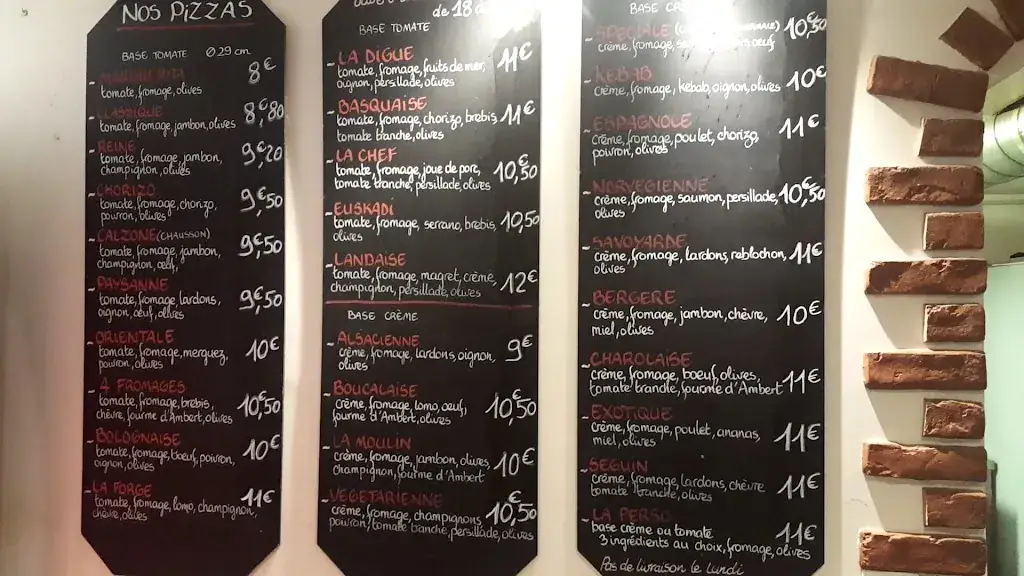 NOS PIZZAS
BASE TOMATE Ø 29 cm
- MARGHERITA 8€
tomate, fromage, olives
- CLASSIQUE 8€,80
tomate, fromage, jambon, olives
- REINE 9€,20
tomate, fromage, jambon,
champignon, olives
- CHORIZO 9€,50
tomate, fromage, chorizo,
poivron, olives
- CALZONE (CHAUSSON) 9€,50
tomate, fromage, jambon,
champignon, œuf,
- PAYSANNE 9€,50
tomate, fromage, lardons,
oignon, œuf, olives
- ORIENTALE 10€
tomate, fromage, merguez,
poivron, olives
- 4 FROMAGES 10€,50
tomate, fromage, brebis,
chèvre, fourme d'Ambert, olives
- BOLOGNAISE 10€
tomate, fromage, bœuf, poivron,
oignon, olives
- LA FORGE 11€
tomate, fromage, lomo, champignon,
chèvre, olives
de 18
BASE TOMATE
- LA DIGUE 11€
tomate, fromage, fruits de mer,
oignon, persillade, olives
- BASQUAISE 11€
tomate, fromage, chorizo, brebis
tomate tranche, olives
- LA CHEF 10€,50
tomate, fromage, joue de porc,
tomate tranche, persillade, olives
- EUSKADI 10,50
tomate, fromage, serrano, brebis,
olives
- LANDAISE 12€
tomate, fromage, magret, crème,
champignon, persillade, olives
BASE CRÈME
- ALSACIENNE 9€
crème, fromage, lardons, oignon,
olives
- BOUCALAISE 10€,50
crème, fromage, lomo, œuf,
fourme d'Ambert, olives
- LA MOULIN 10€
crème, fromage, jambon, olives,
champignon, fourme d'Ambert
- VEGETARIENNE 10€,50
crème, fromage, champignons
poivron, tomate tranche, persillade, olives
BASE
- SPECIALE 10€,50
crème, fromage, œuf
- KEBAB 10€
crème, fromage, kebab, oignon, olives
- ESPAGNOLE 11€
crème, fromage, poulet, chorizo,
poivron, olives
- NORVEGIENNE 10€,50
crème, fromage, saumon, persillade,
olives
- SAVOYARDE 11€
crème, fromage, lardons, reblochon,
olives
- BERGERE 10€
crème, fromage, jambon, chèvre,
miel, olives
- CHAROLAISE 11€
crème, fromage, bœuf, olives,
tomate tranche, fourme d'Ambert
- EXOTIQUE 11€
crème, fromage, poulet, ananas,
miel, olives
- SEGUIN 11€
crème, fromage, lardons, chèvre
tomate tranche, olives
- LA PERSO 11€
base crème ou tomate
3 ingrédients au choix, fromage, olives
Pas de livraison le lundi